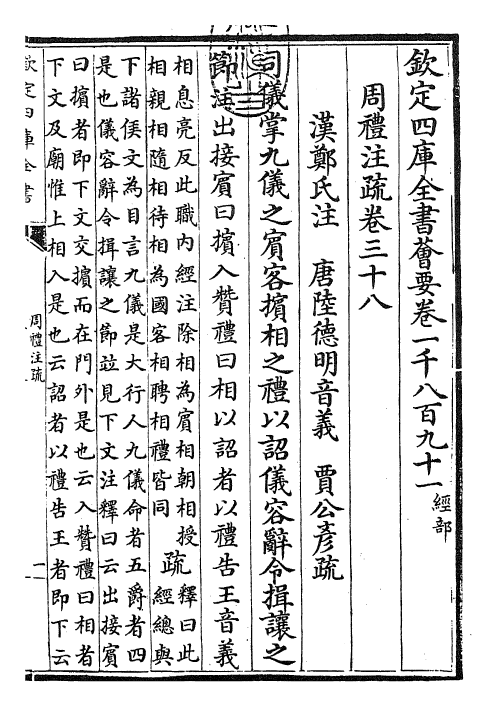 欽定四庫全書薈要卷一千八百九十一 經部
周禮注疏卷三十八
漢鄭氏注 唐陸德明音義 賈公彥疏
司儀掌九儀之賓客擯相之禮以詔儀容辭令揖讓之
節注出接賓曰擯入贊禮曰相以詔者以禮告王音義
相息亮反此職内經注除相為賓相朝相授
相親相隨相待相為國客相聘相禮皆同
疏
釋曰此
經總與
下諸侯文為目言九儀是大行人九儀命者五爵者四
是也儀容辭令揖讓之節並見下文注釋曰云出接賓
曰擯者即下文交擯而在門外是也云入贊禮曰相者
下文及廟惟上相入是也云詔者以禮告王者即下云
欽定四庫全書
周禮注疏